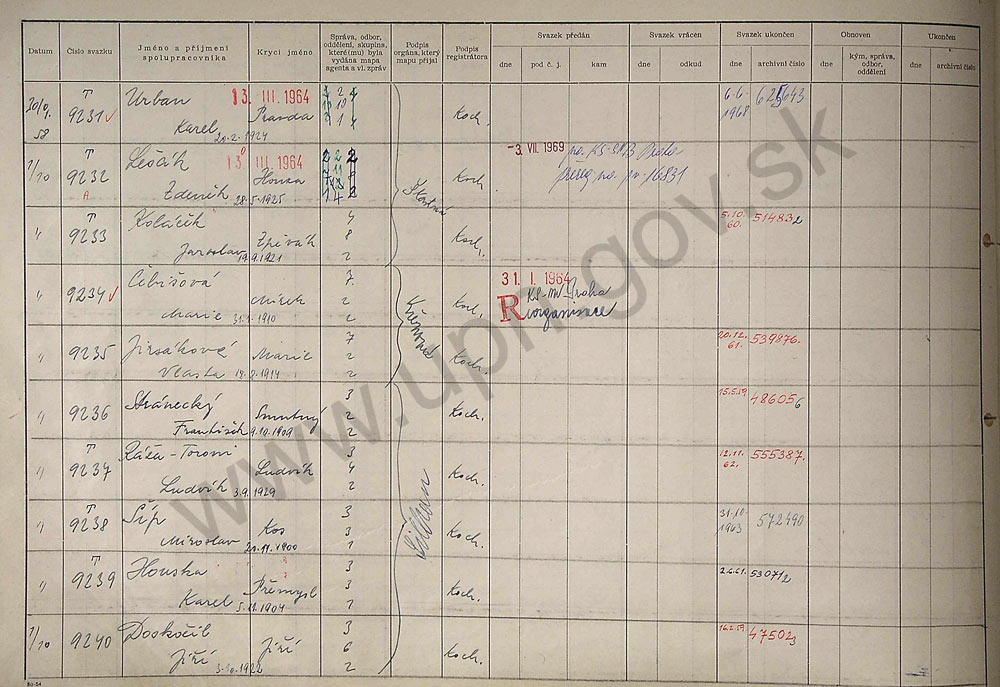 Datum
Číslo svazku
Jméno a příjmení spolupracovníka
Krycí jméno
Správa, odbor, oddělení, skupina, které(mu) byla vydána mapa agenta a vl. zpráv
Podpis orgána, který mapu přijal
Podpis registrátora
Svazek předán
Svazek vrácen
Svazek ukončen
Obnoven
Ukončen
dne
pod č. j.
kam
dne
odkud
dne
archivní číslo
dne
kým, správa, odbor, oddělení
dne
archivní číslo
58
T
9231
Urban
13. III. 1964
Karel
Pravda
20.2.1924
Koch.
6.6. 1968
625643
1/10
T
9232
A
Leščák
13 III 1964
Zdeněk
Honza
28.5.1925
2 2 2
1 4 2
Koch.
-3. VII. 1969
16831
"
T
9233
Koláčik
Jaroslav
Zpěvák
19.9.1921
4
8
2
Koch.
5.10. 60.
514832
"
9234
Čebišová
Marie
Mirek
31.1.1910
7.
2
2
Koch.
31. I. 1964
R
KS-MV Praha
reorganisace
"
9235
Jirsáková
Vlasta
Marie
7
2
2
Koch.
20.12. 61.
539876.
"
T
9236
Stránecký
František
Smutný
9.10.1909
3
2
2
Koch.
15.5.59
486056
"
T
9237
Ráža-Toroni
Ludvík
Ludvík
3.9.1929
3
4
2
Koch.
12.11. 62.
555387.
"
T
9238
Šíp
Miroslav
Kos
20.11.1900
3
3
1
Koch.
31.10. 1963
572490
"
T
9239
Houska
Karel
Přemysl
5.11.1904
3
3
1
Koch.
2.6.61.
530712
1/10
T
9240
Doskočil
Jiří
Jiří
3.10.1922
3
6
2
Koch.
16.2.59
475023
80-54
www.upn.gov.sk